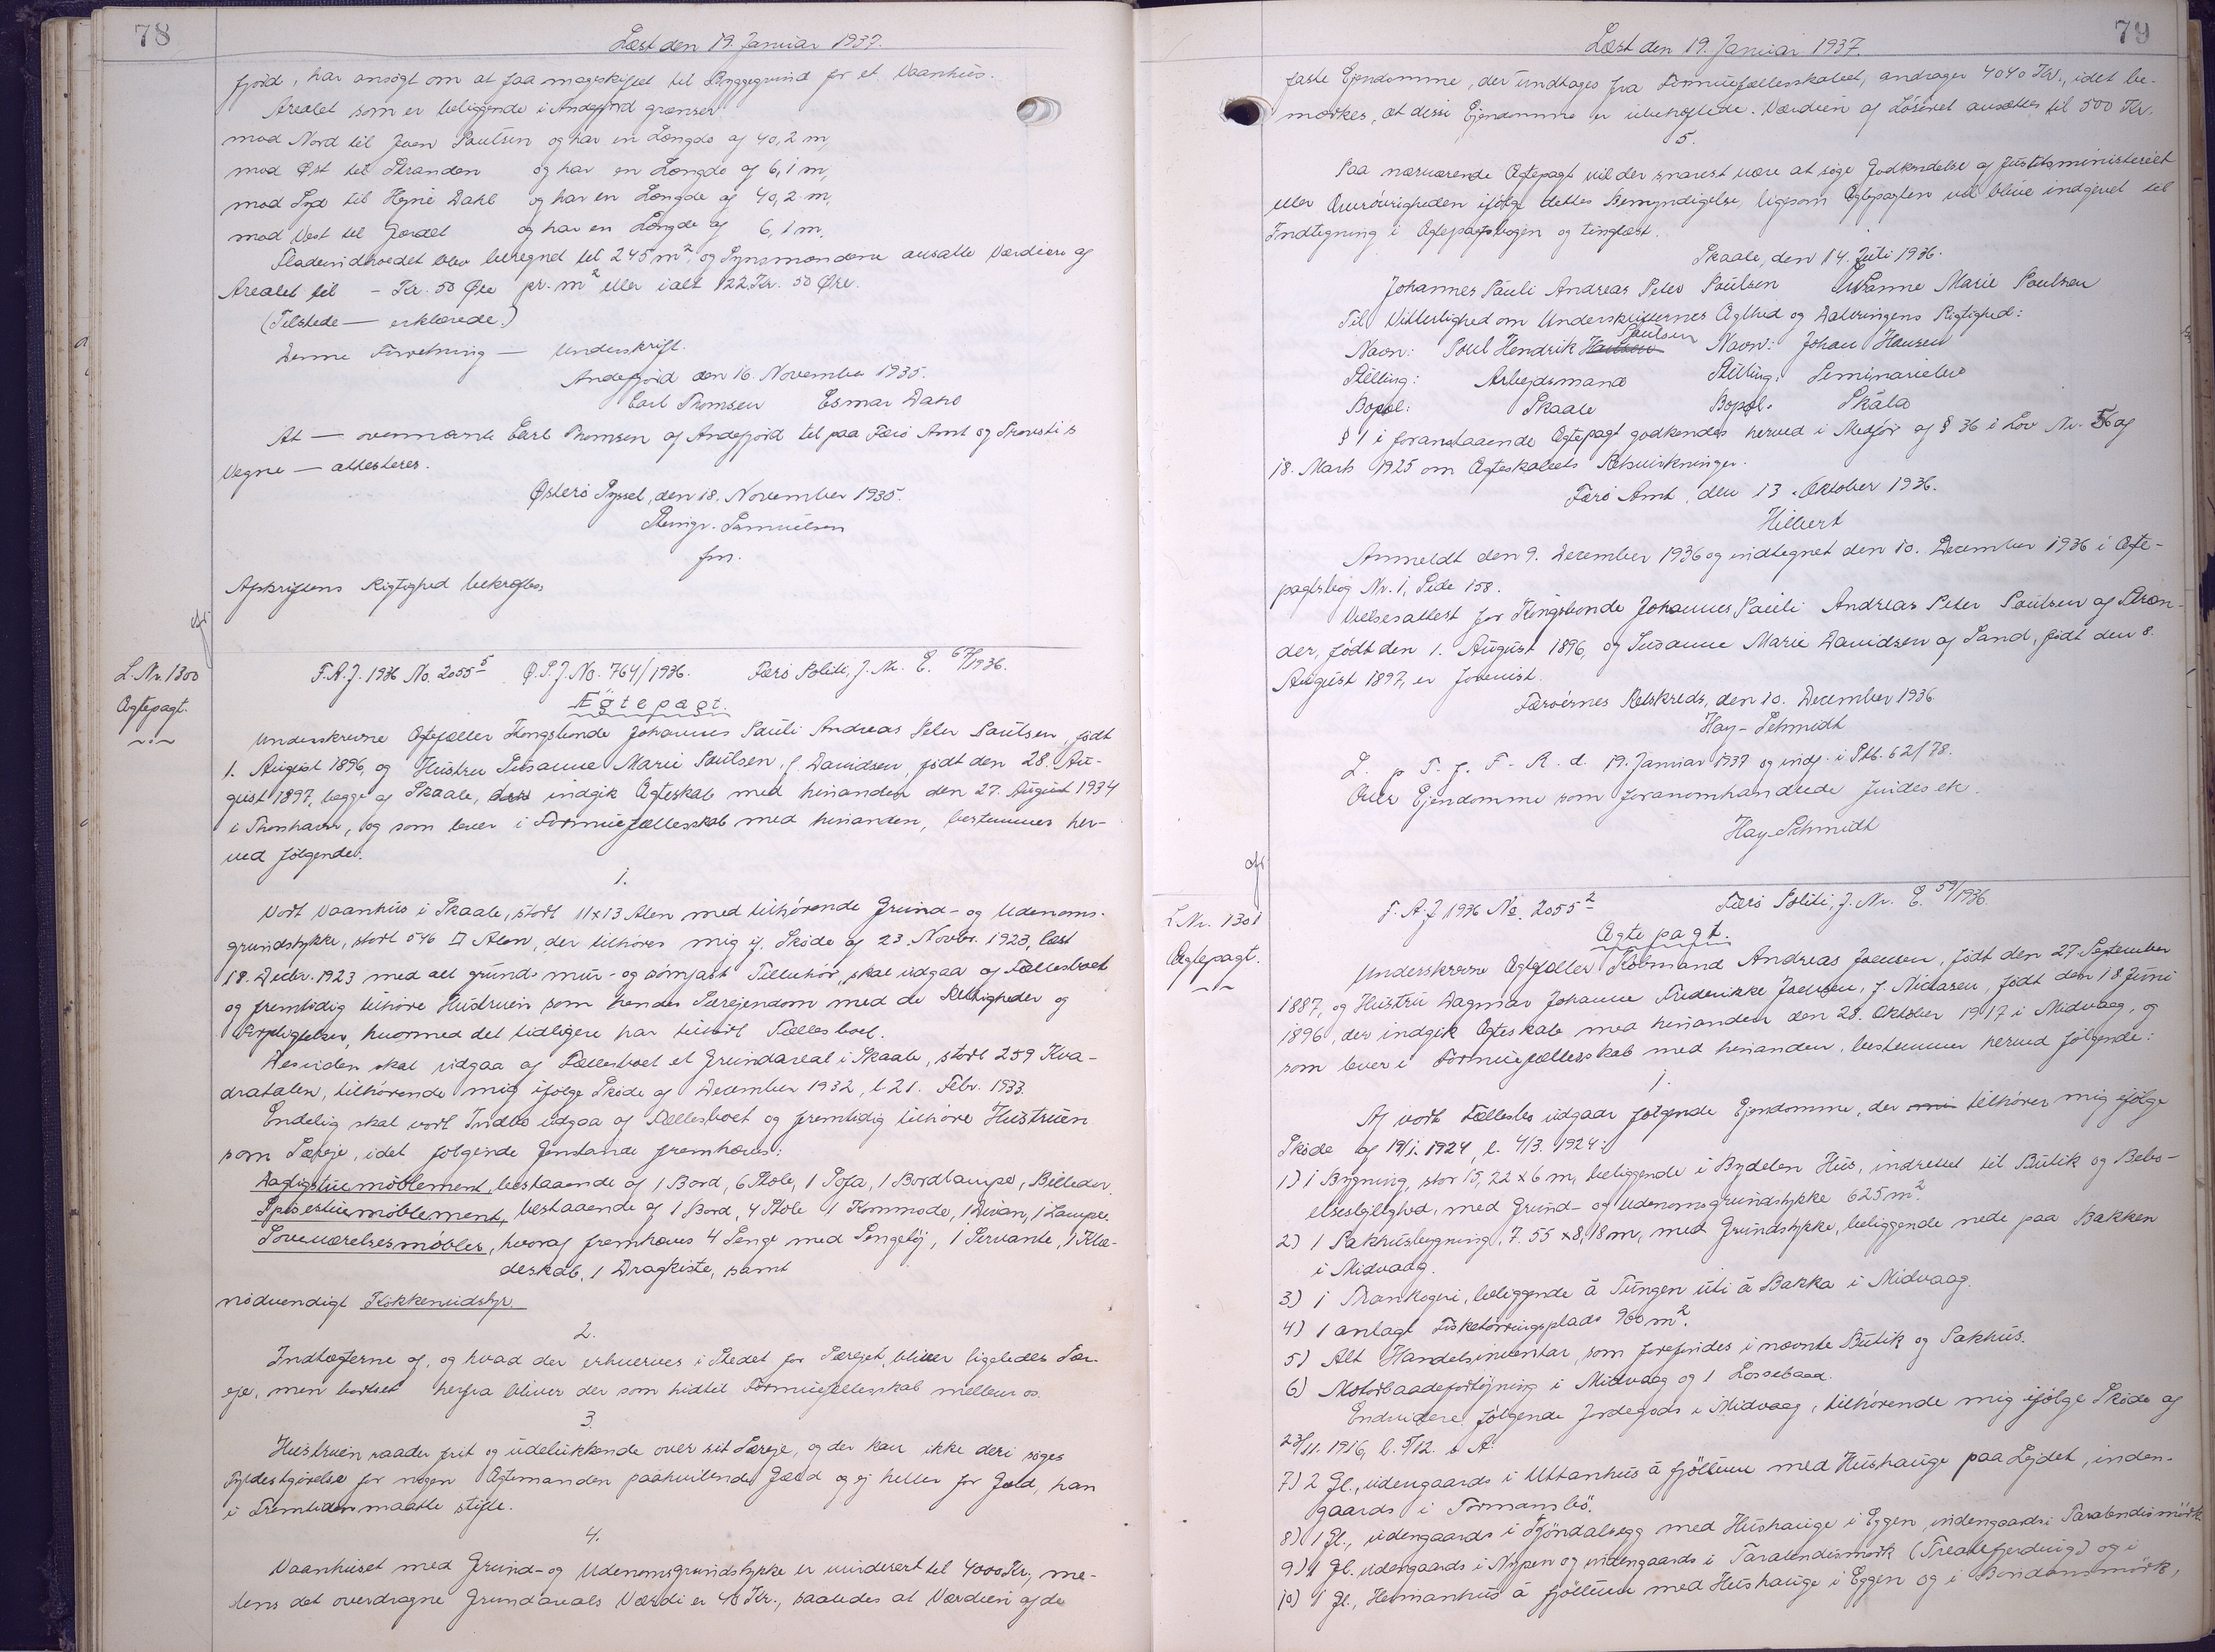 78
Læst den 19. Januar 1937.
fjord, har ansøgt om at faa mageskiftet til Byggegrund for et Vaanhus.
Arealet som er beliggende i Andefjord grænser
mod Nord til Joen Poulsen og har en Længde af 40,2 m,
mod Øst til Stranden og har en Længde af 6,1 m,
mod Syd til Høgni Dahl og har en Længde af 40,2 m,
mod Vest til Gærdet og har en Længde af 6,1 m.
Fladeindholdet blev beregnet til 245 m² og Synsmændene ansatte Værdien af
Arealet til - Kr. 50 Øre pr. m² eller ialt 122 Kr. 50 Øre.
(Tilstede — erklærede.)
Denne Forretning — Underskrift.
Andefjord den 16. November 1935.
Carl Thomsen Esmar Dahl
At — ovennævnte Carl Thomsen af Andefjord til paa Færø Amt og Provsti's
Vegne — attesteres.
Østerø Syssel, den 18. November 1935.
Steingr. Samuelsen
fm.
Afskriftens Rigtighed bekræftes,
L.Nr. 1300
Ægtepagt.
F.A.J. 1936 No. 2055-5 Ø.S.J. No. 764/1936. Færø Politi, J. Nr. E. 67/1936.
Ægtepagt.
Underskrevne Ægtefæller Kongsbonde Johannes Pauli Andreas Peter Poulsen, født
1. August 1896, og Hustru Susanne Marie Poulsen, f. Davidsen, født den 28. Au-
gust 1897, begge af Skaale, indgik Ægteskab med hinanden den 27. August 1934
i Thorshavn, og som lever i Formuefællesskab med hinanden, bestemmer her-
ved følgende:
1.
Vort Vaanhus i Skaale, stort 11x13 Alen med tilhørende Grund- og Udenoms-
grundstykke, stort 546 □ Alen, der tilhører mig if. Skøde af 23. Novbr. 1923, læst
18. Decbr. 1923 med alt grund- mur- og sømfast Tilbehør, skal udgaa af Fællesboet
og fremtidig tilhøre Hustruen som hendes Særejendom med de Rettigheder og
Forpligtelser, hvormed det tidligere har tilhørt Fællesboet.
Desuden skal udgaa af Fællesboet et Grundareal i Skaale, stort 259 Kva-
dratalen, tilhørende mig ifølge Skøde af December 1932, l. 21. Febr. 1933.
Endelig skal vort Indbo udgaa af Fællesboet og fremtidig tilhøre Hustruen
som Særeje, idet følgende Genstande fremhæves:
Dagligstuemøblement, bestaaende af 1 Bord, 6 Stole, 1 Sofa, 1 Bordlampe, Billeder,
Spisestuemøblement, bestaaende af 1 Bord, 4 Stole 1 Kommode, 1 Divan, 1 Lampe.
Soveværelsesmøbler, hvoraf fremhæves 4 Senge med Sengetøj, 1 Servante, 1 Klæ-
deskab, 1 Dragkiste, samt
nødvendigt Køkkenudstyr.
2.
Indtægterne af, og hvad der erhverves i Stedet for Særejet, bliver ligeledes Sær-
eje, men bortset herfra bliver der som hidtil Formuefællesskab mellem os.
3.
Hustruen raader frit og udelukkende over sit Særeje, og der kan ikke deri søges
Fyldestgørelse for nogen Ægtemanden paahvilende Gæld og ej heller for Gæld, han
i Fremtiden maatte stifte.
4.
Vaanhuset med Grund- og Udenomsgrundstykke er vurderet til 4000 Kr., me-
dens det overdragne Grundareals Værdi er 40 Kr., saaledes at Værdien af de
79
Læst den 19. Januar 1937.
faste Ejendomme, der undtages fra Formuefællesskabet, andrager 4040 Kr., idet be-
mærkes, at disse Ejendomme er ubehæftede. Værdien af Løsøret ansættes til 500 Kr.
5.
Paa nærværende Ægtepagt vil der snarest være at søge Godkendelse af Justitsministeriet
eller Overøvrigheden ifølge dettes Bemyndigelse, ligesom Ægtepagten vil blive indgivet til
Indtegning i Ægtepagtsbogen og tinglæst.
Skaale, den 14. Juli 1936.
Johannes Pauli Andreas Peter Poulsen Susanne Marie Poulsen
Til Vitterlighed om Underskrifternes Ægthed og Dateringens Rigtighed:
Navn: Poul Hendrik Hansen Poulsen Navn: Johan Hansen
Stilling: Arbejdsmand Stilling: Seminarielev
Bopæl: Skaale Bopæl: Skála
§ 1 i foranstaaende Ægtepagt godkendes herved i Medfør af § 36 i Lov Nr. 56 af
18. Marts 1925 om Ægteskabets Retsvirkninger.
Færø Amt, den 13. Oktober 1936.
Hilbert
Anmeldt den 9. December 1936 og indtegnet den 10. December 1936 i Ægte-
pagtsbog Nr. 1, Side 158.
Vielsesattest for Kongsbonde Johannes Pauli Andreas Peter Poulsen af Stræn-
der, født den 1. August 1896, og Susanne Marie Davidsen af Sand, født den 8.
August 1897, er forevist.
Færøernes Retskreds, den 10. December 1936
Hay-Schmidt
L. p T. f. F. R. d. 19. Januar 1937 og indf. i Ptb. 62/78.
Over Ejendomme som foranomhandlede findes ek.
Hay-Schmidt
L.Nr. 1301
Ægtepagt.
F.A.J 1936 No. 2055-2 Færø Politi, J. Nr. E. 59/1936.
Ægtepagt.
Underskrevne Ægtefæller Købmand Andreas Joensen, født den 27. September
1887, og Hustru Dagmar Johanne Frederikke Joensen, f. Niclasen, født den 18. Juni
1896, der indgik Ægteskab med hinanden den 28. Oktober 1917 i Midvaag, og
som lever i Formuefællesskab med hinanden, bestemmer herved følgende:
1.
Af vort Fællesbo udgaar følgende Ejendomme, der tilhører mig ifølge
Skøde af 19/1. 1924, l. 4/3. 1924:
1) 1 Bygning, stor 15,22 x 6 m, beliggende i Bydelen Hus, indrettet til Butik og Bebo-
elseslejlighed, med Grund- og Udenomsgrundstykke 625 m².
2) 1 Pakhusbygning, 7.55 x 8,18 m, med Grundstykke, beliggende nede paa Bakken
i Midvaag.
3) 1 Trankogeri, beliggende á Tungen úti á Bakka i Midvaag.
4) 1 anlagt Fisketørringsplads 960 m².
5) Alt Handelsinventar, som forefindes i nævnte Butik og Pakhus.
6) Motorbaadefortøjning i Midvaag og 1 Lossebaad.
Endvidere følgende Jordegods i Midvaag, tilhørende mig ifølge Skøde af
23/11. 1916, l. 5/12. s. A.
7) 2 Gl., udengaards i Uttanhús á fjøllum med Hushauge paa Lejdet, inden-
gaards i Tormansbø.
8) 1 Gl., udengaards i Fjøndalsegg med Hushauge i Eggen, indengaards i Taralendismørk
9) 1 Gl. udengaards i Nypen og indengaards i Taralendismørk (Treabefjerding) og i
10) 1 Gl., Heimanhus á fjøllum med Hushauge i Eggen og i Bendansmørk,